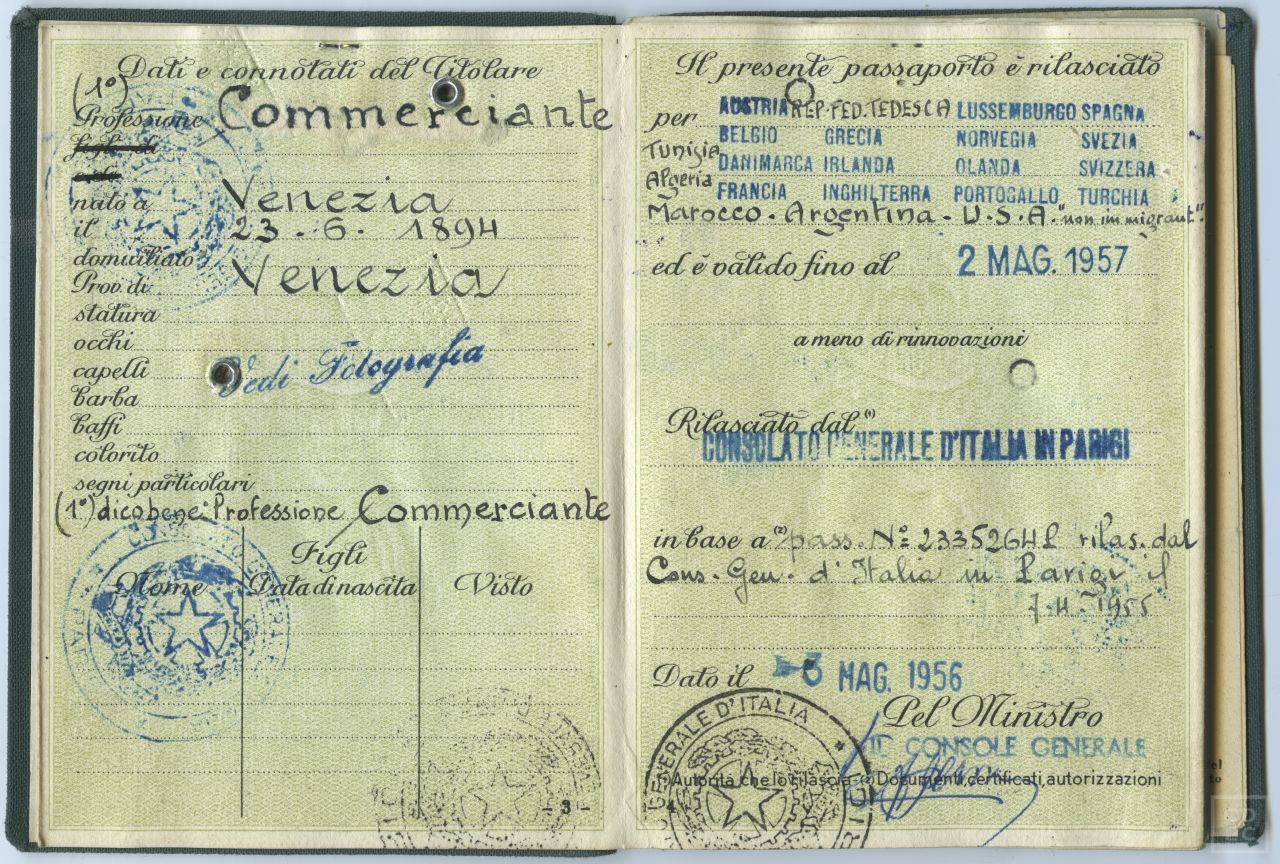 Dati e connotati del Titolare
(1°)
Professione Commerciante
nato a Venezia
il 23 - 6 - 1894
domiciliato
Prov. di Venezia
statura
occhi
capelli Vedi Fotografia
barba
baffi
colorito
segni particolari
(1°) dico bene: Professione Commerciante
Figli
Nome Data di nascita Visto
- 3 -
Il presente passaporto è rilasciato
per AUSTRIA REP. FED. TEDESCA LUSSEMBURGO SPAGNA
BELGIO GRECIA NORVEGIA SVEZIA
Tunisia
DANIMARCA IRLANDA OLANDA SVIZZERA
Algeria
FRANCIA INGHILTERRA PORTOGALLO TURCHIA
Marocco - Argentina - U.S.A. "non immigrant"
ed è valido fino al 2 MAG. 1957
a meno di rinnovazioni
Rilasciato dal (1)
CONSOLATO GENERALE D'ITALIA IN PARIGI
in base a (2) pass. N° rilas. dal
Cons. Gen. d'Italia in Parigi il
1955
Dato il MAG. 1956
Pel Ministro
IL CONSOLE GENERALE
GENERALE D'ITALIA
(1) Autorità che lo rilascia (2) Documenti, certificati, autorizzazioni
4